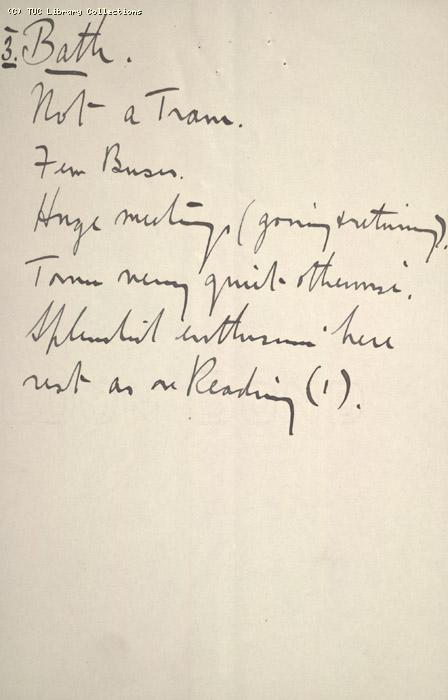 (C) TUC Library Collections
3. Bath.
Not a Tram.
Few Buses.
Huge meetings (going & returning).
Town very quiet otherwise.
Splendid enthusiasm here
rest as on Reading (1).